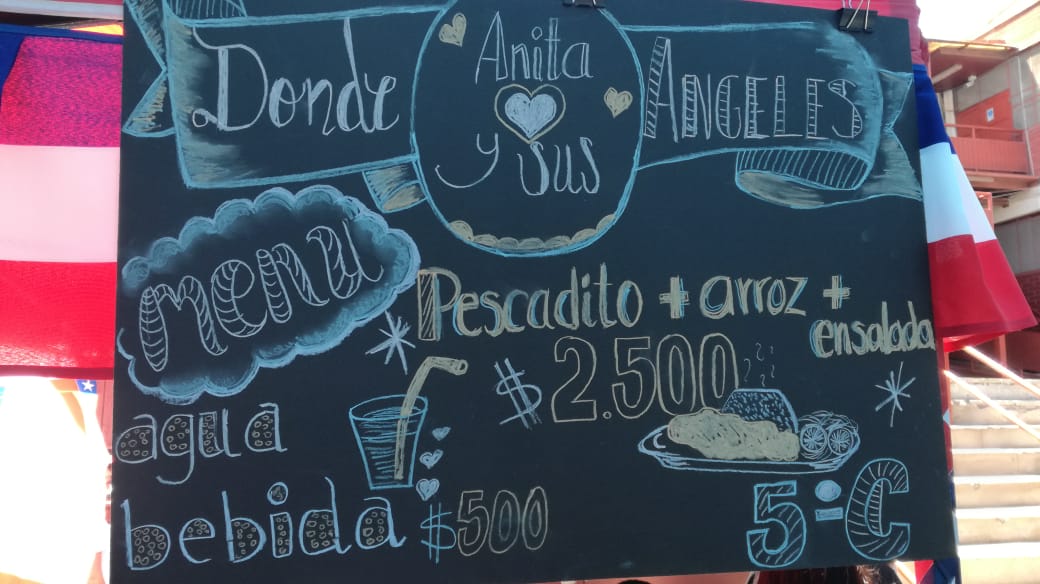 Donde Anita y sus ANGELES
menu
Pescadito + arroz + ensalada
$2.500
agua
bebida $500
5-C